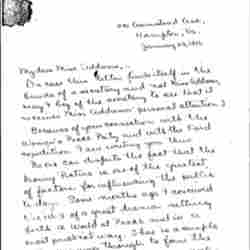 Hampton, Va.
January 23, 1916
My dear Miss Addams,--
In case this letter finds itself in the
hands of a secretary and not Miss Addams,
may I beg of the secretary to see that it
receives Miss Addams' personal attention?
Because of your connection with the
Woman's Peace Party and with the Ford
expedition I am writing you this.
No one can dispute the fact that the
Moving Picture is one of the greatest
of factors for influencing the public
to-day. Some months ago I conceived
the idea of a great drama setting
forth a World at Peace and in a
most practical way. I has a simple
through to form the